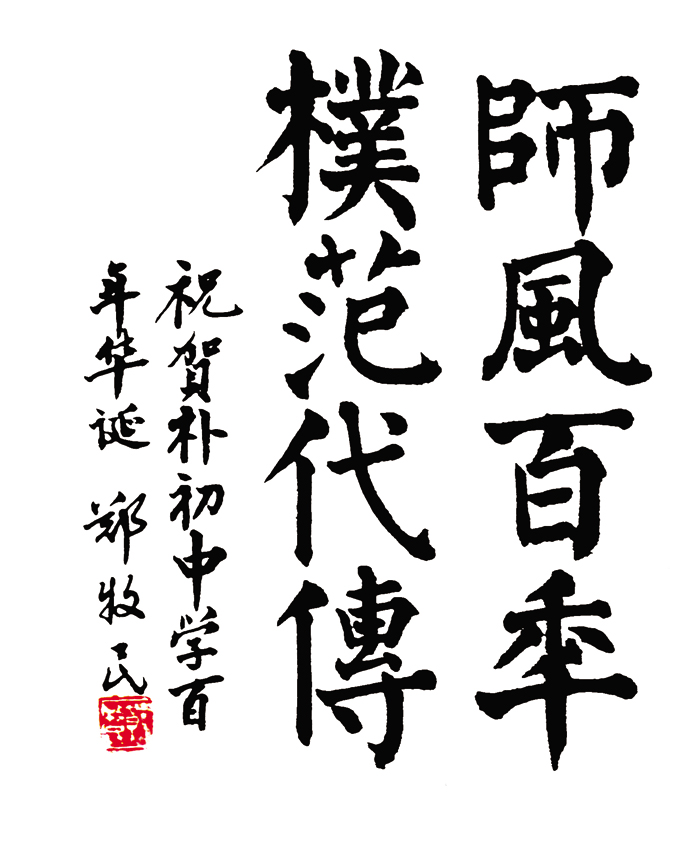 師風百秊
樸范代傳
祝賀朴初中学百
年华诞 郑牧民